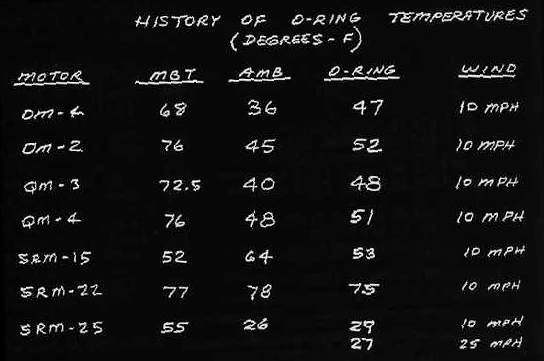 HISTORY OF O-RING TEMPERATURES
(DEGREES-F)
MOTOR MBT AMB O-RING WIND
DM-4 68 36 47 10 MPH
DM-2 76 45 52 10 MPH
QM-3 72.5 40 48 10 MPH
QM-4 76 48 51 10 MPH
SRM-15 52 64 53 10 MPH
SRM-22 77 78 75 10 MPH
SRM-25 55 26 29 10 MPH
27 25 MPH